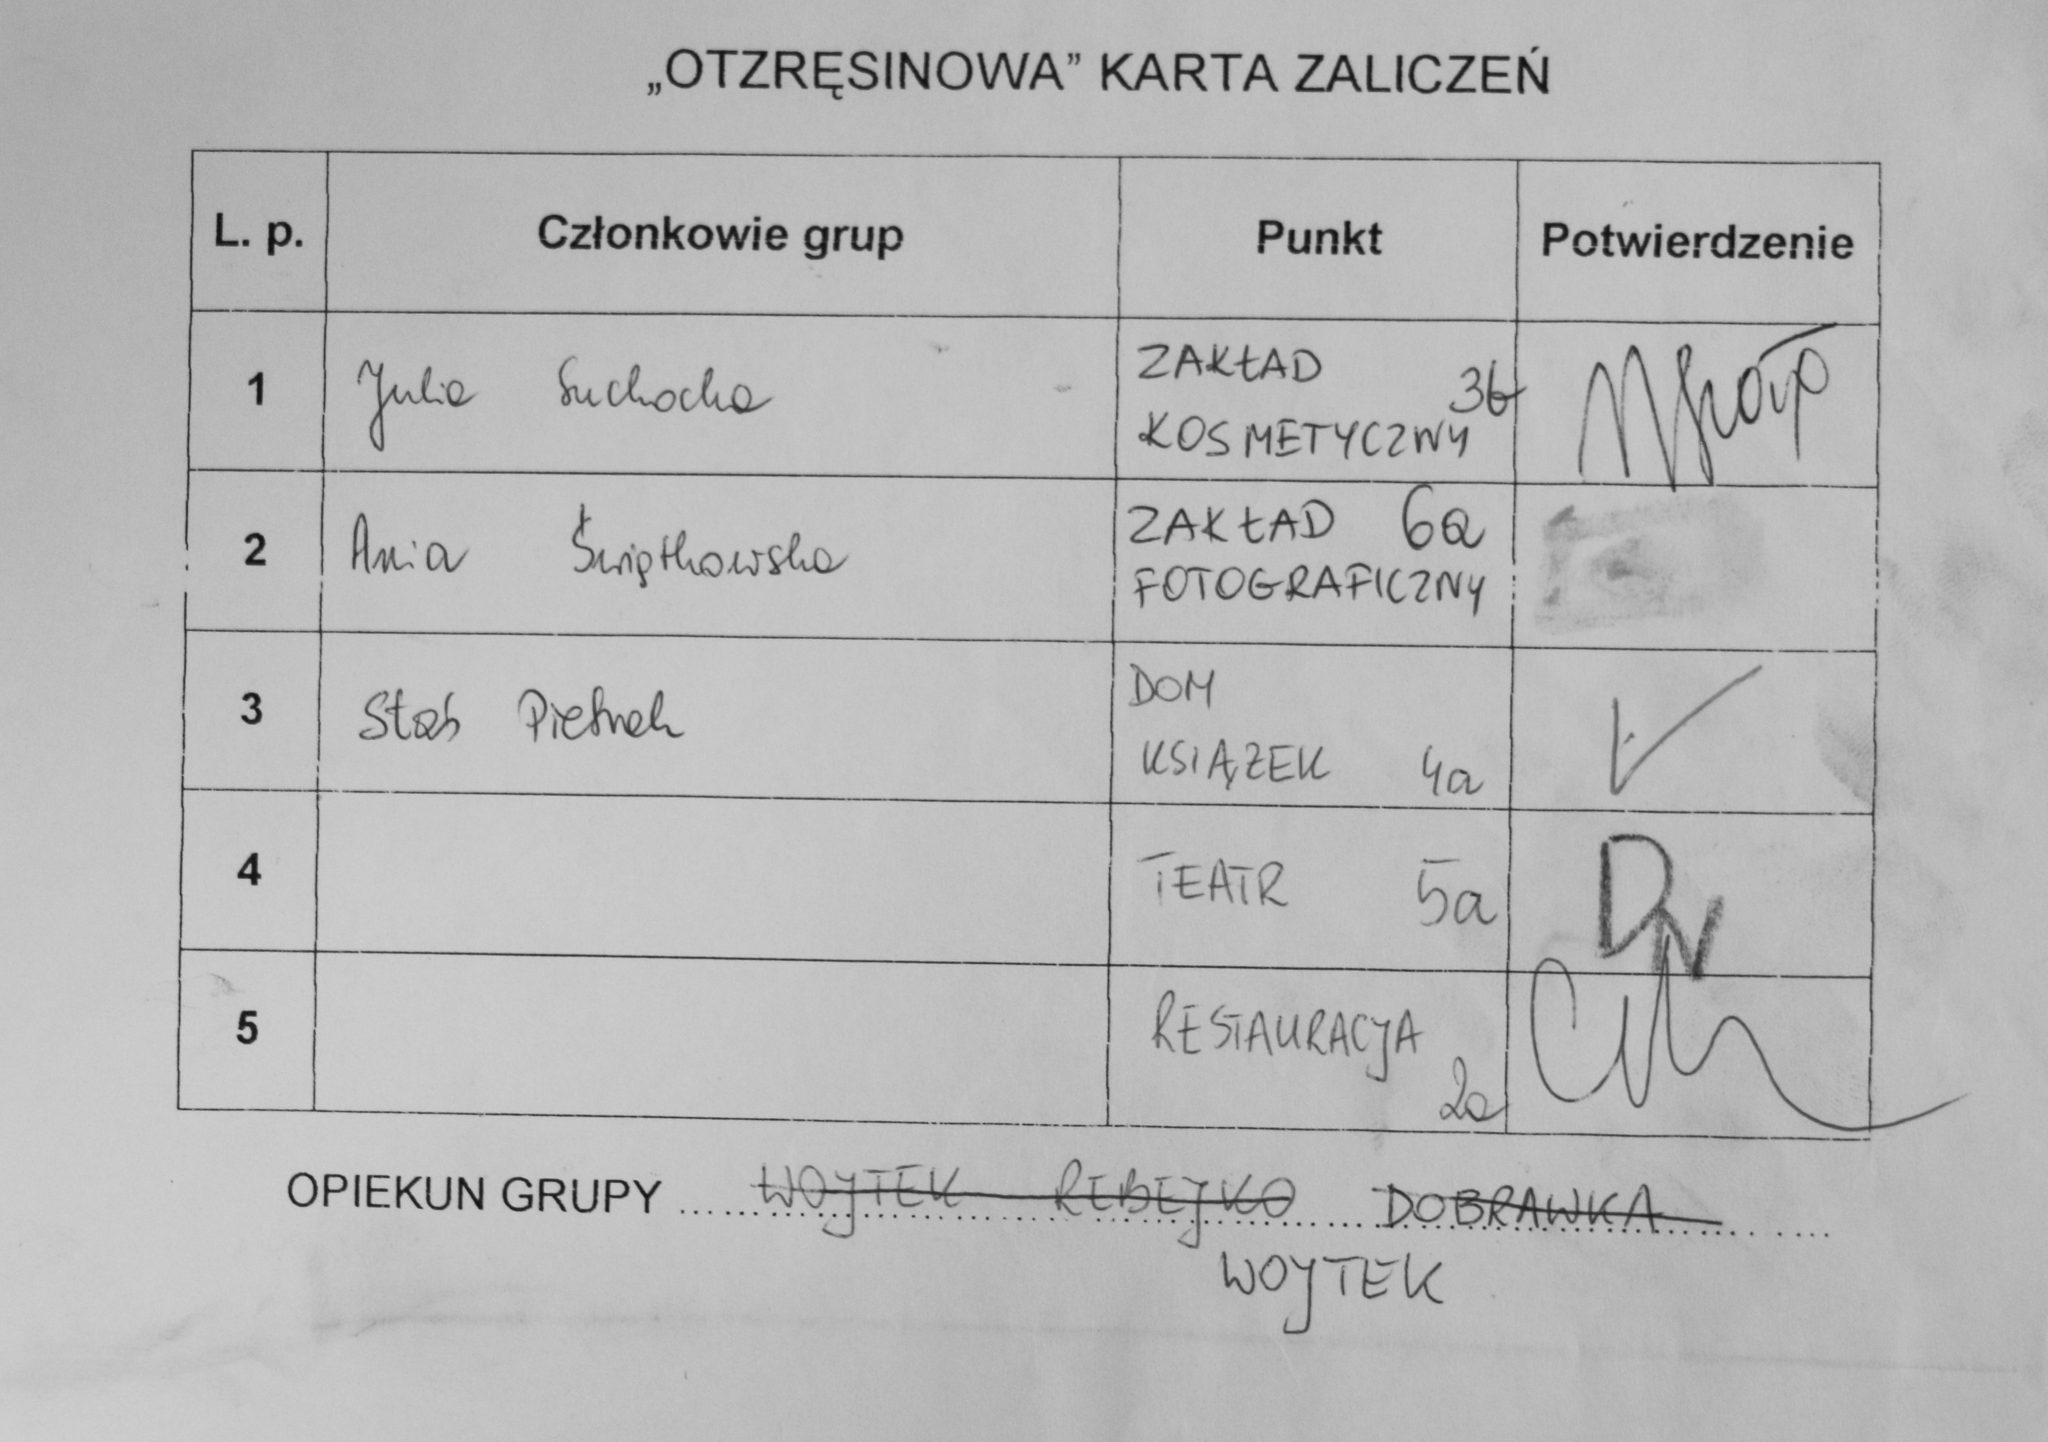 „OTZRĘSINOWA” KARTA ZALICZEŃ
L. p. Członkowie grup Punkt Potwierdzenie
1 Julia Suchocka ZAKŁAD
KOSMETYCZNY 3b
2 Ania Świątkowska ZAKŁAD 6a
FOTOGRAFICZNY
3 Staś Pietrak DOM
KSIĄŻEK 4a
4 TEATR 5a DN
5 RESTAURACJA
2a
OPIEKUN GRUPY WOJTEK REBEJKO DOBRAWKA
WOJTEK